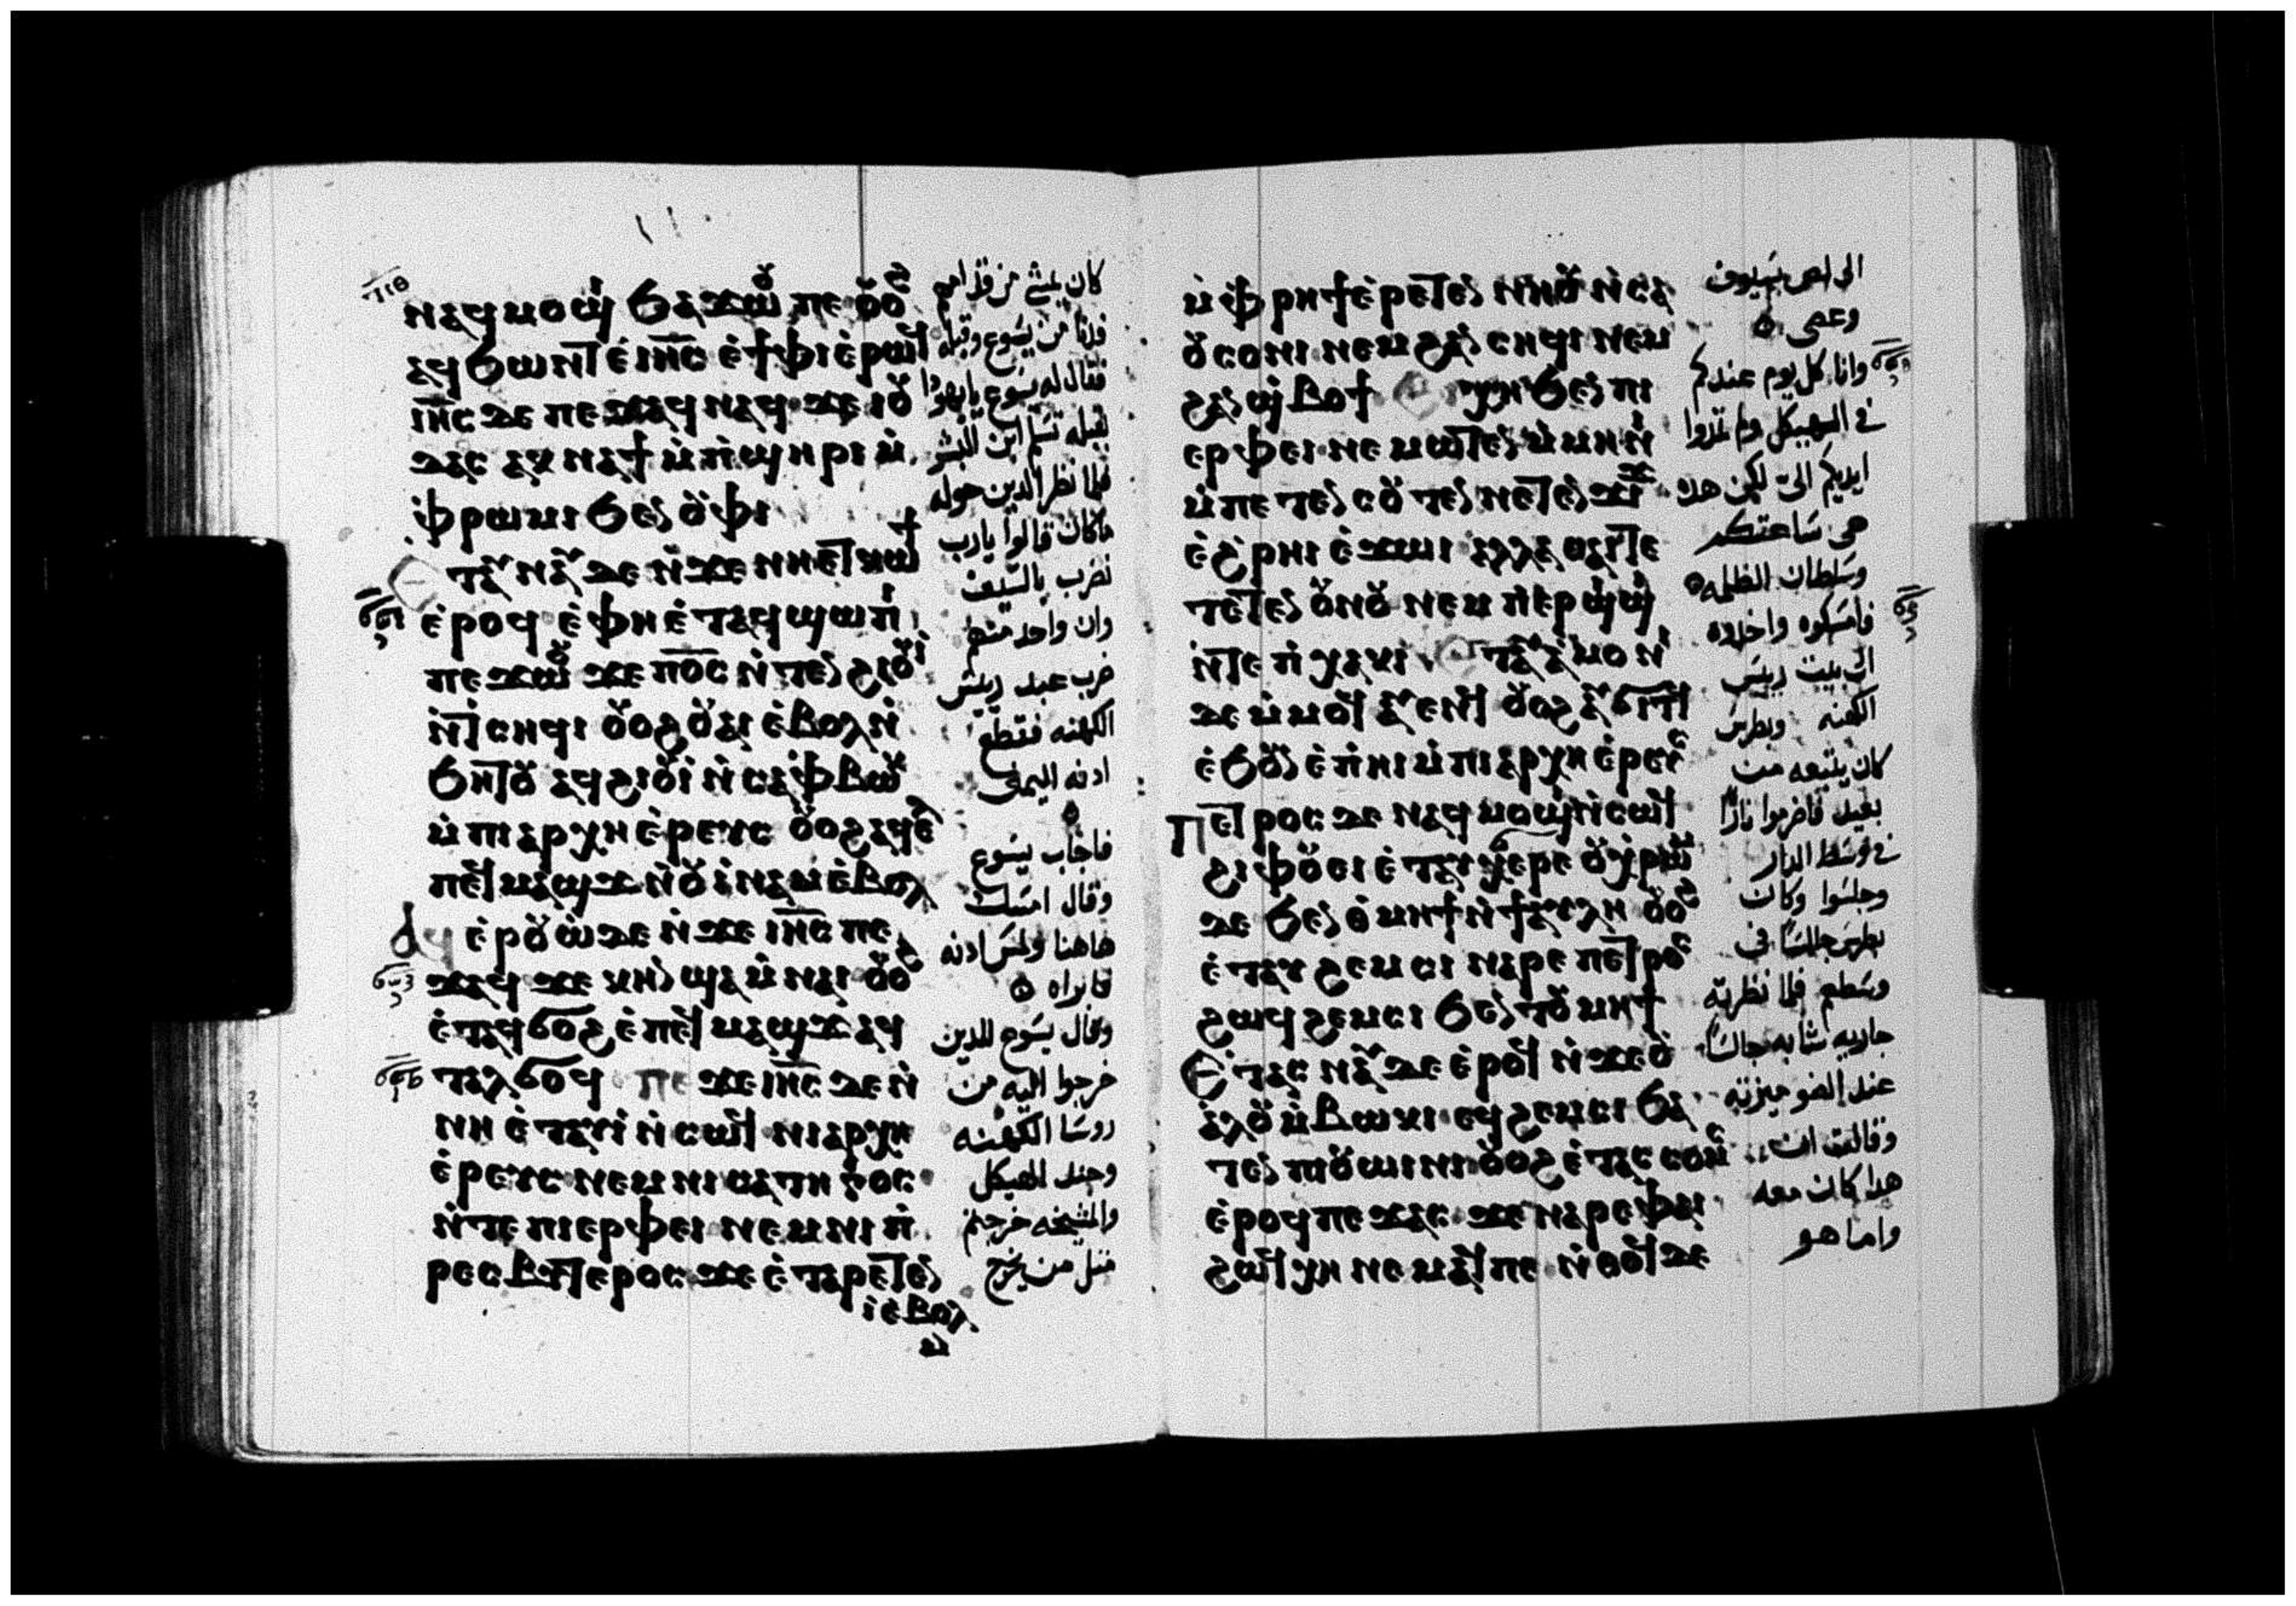 ⲛⲁϥⲙⲟϣⲓ ϧⲁϫⲱⲟⲩ ⲡⲉ ⲟⲩⲟϩ
ⲁϥϧⲱⲛⲧ ⲉⲓⲏⲥ ⲉϯⲫⲓ ⲉⲣⲱϥ
ⲓⲏⲥ ⲇⲉ ⲡⲉϫⲁϥ ⲛⲁϥ ϫⲉ ⲓⲟⲩ
ⲇⲁⲥ ⲁⲕⲛⲁϯ ⲙⲡϣⲏⲣⲓ ⲙ
ⲫⲣⲱⲙⲓ ϧⲉⲛ ⲟⲩⲫⲓ
ⲉⲧⲁⲩⲛⲁⲩ ⲇⲉ ⲛϫⲉ ⲛⲏⲉⲧⲕⲱϯ
ⲉⲣⲟϥ ⲉⲫⲏ ⲉⲧⲁϥϣⲱⲡⲓ
ⲡⲉϫⲱⲟⲩ ϫⲉ ⲡⲟⲥ ⲛⲧⲉⲛϩⲓⲟⲩⲓ
ⲛⲧⲥⲏϥⲓ ⲟⲩⲟϩ ⲟⲩⲁⲓ ⲉⲃⲟⲗ ⲛ
ϧⲏⲧⲟⲩ ⲁϥϩⲓⲟⲩⲓ ⲛⲥⲁ ⲫⲃⲱⲕ
ⲙⲡⲓⲁⲣⲭⲏⲉⲣⲉⲩⲥ ⲟⲩⲟϩ ⲁϥⲉⲗ
ⲡⲉϥⲙⲁϣϫ ⲛⲟⲩⲓⲛⲁⲙ ⲉⲃⲟⲗ
ⲁϥⲉⲣⲟⲩⲱ ⲇⲉ ⲛϫⲉ ⲓⲏⲥ ⲡⲉ
ϫⲁϥ ϫⲉ ⲕⲏⲛ ϣⲁ ⲙⲛⲁⲓ ⲟⲩⲟϩ
ⲉⲧⲁϥϭⲟϩ ⲉⲡⲉϥⲙⲁϣϫ ⲁϥ
ⲧⲁⲗϭⲟϥ ⲡⲉϫⲉ ⲓⲏⲥ ⲇⲉ ⲛ
ⲛⲏ ⲉⲧⲁⲩⲓ ⲛⲥⲱϥ ⲛⲓⲁⲣⲭⲏ
ⲉⲣⲉⲩⲥ ⲛⲉⲙ ⲛⲓⲥⲁⲧⲏⲅⲟⲥ
ⲛⲧⲉ ⲡⲓⲉⲣⲫⲉⲓ ⲛⲉⲙ ⲛⲓⲡ
ⲣⲉⲥⲃⲩⲧⲉⲣⲟⲥ ϫⲉ ⲉⲧⲁⲣⲉⲧⲉⲛ
ⲓ ⲉⲃⲟⲗ
ⲙ
كان يمشي من قدامهم
فدنا من يسوع وقبله
فقال له يسوع يا يهودا
بقبله تسلم ابن البشر
فلما نظر الدين حوله
ما كان قالوا يا رب
نضرب بالسيف
وان واحد منهم
ضرب عبد ريس
الكهنه فقطع
ادنه اليمنى
فاجاب يسوع
وقال امسك
هاهنا ولمس ادنه
فابراه
وقال يسوع للدين
خرجوا اليه من
روسا الكهنه
وجند الهيكل
والمشيخه خرجتم
مثل من يخرج
ⲙⲫⲣⲏϯ ⲉⲣⲉⲧⲉⲛⲛⲏⲟⲩ ⲛⲥⲁ
ⲟⲩⲥⲟⲛⲓ ⲛⲉⲙ ϩⲁⲛⲥⲏϥⲓ ⲛⲉⲙ
ϩⲁⲛϣⲃⲟϯ ⲉⲓⲭⲏ ϧⲉⲛ ⲡⲓ
ⲉⲣⲫⲉⲓ ⲛⲉⲙⲱⲧⲉⲛ ⲙⲙⲏⲛⲓ
ⲙⲡⲉⲧⲉⲛⲥⲟⲩⲧⲉⲛ ⲛⲉⲧⲉⲛϫⲓϫ
ⲉϩⲣⲏⲓ ⲉϫⲱⲓ ⲁⲗⲗⲁ ⲑⲁⲓ ⲧⲉ
ⲧⲉⲧⲉⲛⲟⲩⲛⲟⲩ ⲛⲉⲙ ⲡⲉⲣϣⲓϣⲓ
ⲛⲧⲉ ⲡⲭⲁⲕⲓ ⲉⲧⲁⲩⲁⲙⲟⲛⲓ
ⲇⲉ ⲙⲙⲟϥ ⲁⲩⲉⲛϥ ⲟⲩⲟϩ ⲁⲩϭⲓⲧϥ
ⲉϧⲟⲩⲛ ⲉⲡⲏⲓ ⲙⲡⲓⲁⲣⲭⲏⲉⲣⲉⲩⲥ
ⲡⲉⲧⲣⲟⲥ ⲇⲉ ⲛⲁϥⲙⲟϣⲓ ⲛⲥⲱϥ
ϩⲓⲫⲟⲩⲉⲓ ⲉⲧⲁⲩϭⲉⲣⲉ ⲟⲩⲭⲣⲱⲙ
ⲇⲉ ϧⲉⲛ ⲑⲙⲏϯ ⲛϯⲁⲩⲗⲏ ⲟⲩⲟϩ
ⲉⲧⲁⲩϩⲉⲙⲥⲓ ⲛⲁⲣⲉ ⲡⲉⲧⲣⲟⲥ
ϩⲱϥ ϩⲉⲙⲥⲓ ϧⲉⲛ ⲧⲟⲩⲙⲏϯ
ⲉⲧⲁⲥⲛⲁⲩ ⲇⲉ ⲉⲣⲟϥ ⲛϫⲉ ⲟⲩ
ⲁⲗⲟⲩ ⲙⲃⲱⲕⲓ ⲉϥϩⲉⲙⲥⲓ ϧⲁ
ⲧⲉⲛ ⲡⲓⲟⲩⲱⲓⲛⲓ ⲟⲩⲟϩ ⲉⲧⲁⲥⲥⲟⲙⲥ
ⲉⲣⲟϥ ⲡⲉϫⲁⲥ ϫⲉ ⲛⲁⲣⲉ ⲫⲁⲓ
ϩⲱϥ ⲭⲏ ⲛⲉⲙⲁϥ ⲡⲉ ⲛⲑⲟϥ ⲇⲉ
الى لص بسيوف
وعصى
وانا كل يوم عندكم
في الهيكل ولم تمدوا
ايديكم الى لكن هده
هى ساعتكم
وسلطان الظلمه
فامسكوه واخدوه
الى بيت ريس
الكهنه وبطرس
كان يتبعه من
بعيد فاضرموا نارًا
في وسط الدار
وجلسوا وكان
بطرس جالسًا في
وسطهم فلما نظرته
جاريه شابه جالسًا
عند الضو ميزته
وقالت ان
هدا كان معه
واما هو